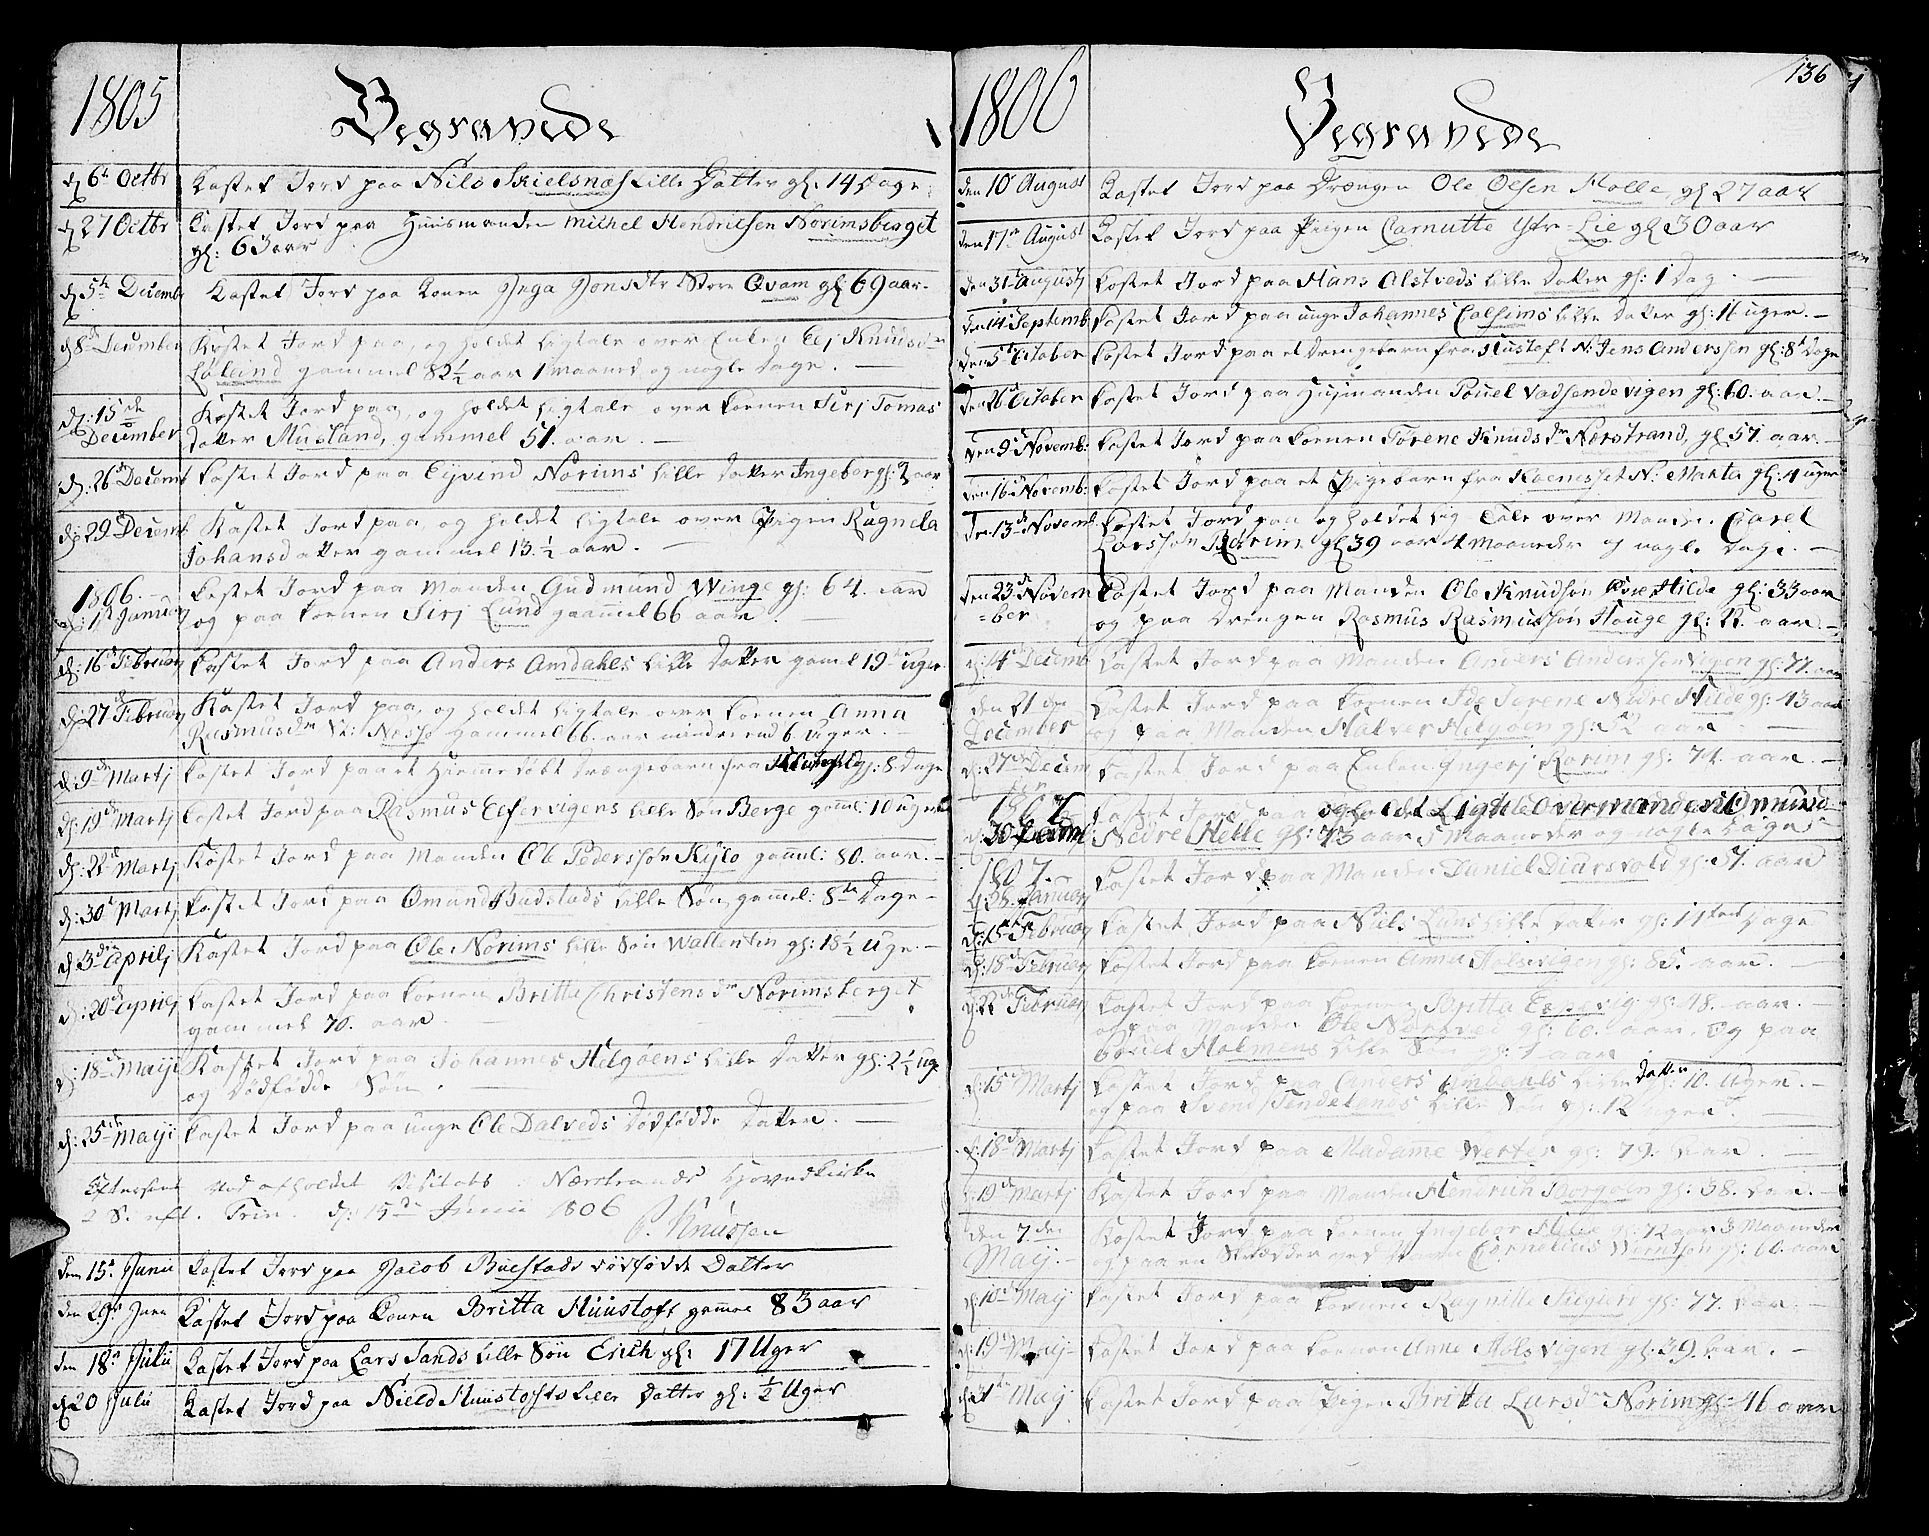 1805
Begravede
d 6t Octbr Kastet Jord paa Nils Skielsnæs Lille Datter gl: 14 Dage
d 27 Octbr Kastet Jord paa Huusmanden Michel Hendriksen Norimsberget
gl: 63 aar
d 5te Decembr Kastet Jord paa Konen Inga Jonsdtr Store Qvam gl 69 aar.
d 8de December Kastet Jord paa, og holdet Ligtale over Enken Knudsdr
gammel 82½ aar 1 maaned og nogle Dage. —
d: 15de December Kastet Jord paa, og holdet Ligtale over Konen Siri Tomas
datter Musland, gammel 51. aar. —
d: 26de Decemb Kastet Jord paa Eivind Norims Lille Datter Ingeber gl: aar
d: 29 Decemb Kastet Jord paa, og holdet Ligtale over Pigen Ragnela
Johansdatter gammel 13.½ aar. —
1806. —
d: 1st Januarj Kastet Jord paa Manden Gudmund Winge gl: 64. aar
og paa Konen Sirj Lund gaamel 66 aar. —
d: 16de Februarj Kastet Jord paa Anders Amdahls Lille Datter gamel 19 Uger
d: 27 Februarj Kastet Jord paa, og holdet Ligtale over Konen Anna
Rasmusdtr gammel 66. aar mindre end 6 Uger.
d: 9de Martj Kastet Jord paa et Hiemmedøbt Drængebarn fra gl: 8 Dage
d: 19de Martj Kastet Jord paa Rasmus Elfervigens Lille Søn Berge gamel: 10 Uger
d: 22de Martj Kastet Jord paa Manden Ole Pedersøn gamel: 80. aar. —
d: 30de Martj Kastet Jord paa Omund Budstads Lille Søn, gammel: 8te Dage —
d: 3die Aprilj Kastet Jord paa Ole Norims Lille Søn Wallentin gl: 15½ Uge. —
d: 20de Aprilj Kastet Jord paa Konen Britta Christensdr Norimsberget
gammel 70. aar. —
d: 18de Maji Kastet Jord paa Johannes Helgøens Lille Datter gl: 2½ Uge
og dødfødde Søn. —
d: 25de Maji Kastet Jord paa unge Ole Dalveds dødfødde Datter. —
Efterseet ved afholdet Visitats i Nærstrands Hovedkirke
2 S. eft. Trin. d: 15de Junii 1806
Knudssen
den 15de Junii Kastet Jord paa Jacob Buestads dødfødde Datter
den 29de Juni Kastet Jord paa Konen Britta Huustoft gamel 83 aar
den 18de Julii Kastet Jord paa Lars Sands Lille Søn Erich gl: 17 Uger
d 20 Julii Kastet Jord paa Nield Huustofts Lille Datter gl: ½ Uger
1806
Begravede
136
den 10 August Kastet Jord paa Drængen Ole Olsen Halle, gl 27 aar
den 17de August Kastet Jord paa Pigen Carnutte Lie gl 30 aar
den 31te Augustj Kastet Jord paa Hans Alstveds Lille Datter gl: 1 Dag. —
den 14de Septemb Kastet Jord paa unge Johannes Lille Datter gl: 11 uger. —
den 5te October Kastet Jord paa et Drengebarn fra Hustoft N: Jens Anderssen gl: 8te Dage
den 26de October Kastet Jord paa Husmanden Pouel Vadsendevigen gl: 60. aar. —
den 9de Novemb: Kastet Jord paa Konen Tørene Knudsdr Nærstrand, gl 57. aar. —
den 16de Novemb: Kastet Jord paa et Pigebarn fra N: Marta gl: 4 uger
den 13de Novemb Kastet Jord paa og holdet Lig Tale over Manden Carel
Larssøn gl 39 aar 4 Maaneder og nogle Dage. —
den 23de Novem
=ber Kastet Jord paa Manden Ole Knudsøn Øvre Hilde gl: 33 aar
og paa Drengen Rasmus Rasmussøn Houge gl: 22. aar. —
d: 14de Decemb Kastet Jord paa Manden Anders Anderssøn Vigen gl: 77. aar
den 21de
December Kastet Jord paa Konen Serene Nedre Hilde gl: 43 aar
og paa Manden Halver Helgøen gl: aar —
d: 27de Decem Kastet Jord paa Enken Ingerj Rorim gl: 74. aar. —
Kastet Jord paa og holdet Ligtale Over manden Omund
Nedre Helle gl: 73 aar 5 Maaneder og nogle Dage
1807.
Januarj Kastet Jord paa Manden Daniel Diursvold gl: 51. aar
Februarj Kastet Jord paa Nils Lunds Lille Datter gl: 11 Dage
d: 18de Februarj Kastet Jord paa Konen Anna Holsvigen gl: 85. aar. —
d: 22 Februarj Kastet Jord paa Konen Britta Espevig gl: 78. aar. —
og paa Manden Ole gl: 60. aar. Og paa
Pouel Holmens Lille Søn gl: 1 aar
d: 15de Martj Kastet Jord paa Anders Amdahls Lille Datter gl: 10. Uger. —
og paa Svend Lille Søn gl: 12 uger. —
d: 18de Martj Kastet Jord paa Madame Werter gl: 79. aar. —
d: 19de Martj Kastet Jord paa Manden Hendrich Borgøen gl: 38. aar. —
den 7de
Maij. — Kastet Jord paa Konen Ingebor gl 72 aar 3 Maaneder
og paa en Skrædder ved Navn Cornelius Werntsøn gl: 60. aar
d: 10de Maij Kastet Jord paa Konen Ragnilla gl: 77. aar. —
d: 19de Maij — Kastet Jord paa Konen Anne Holsvigen gl: 39. aar. —
Maij Kastet Jord paa Pigen Britta Larsdr Norim gl: 46 aar